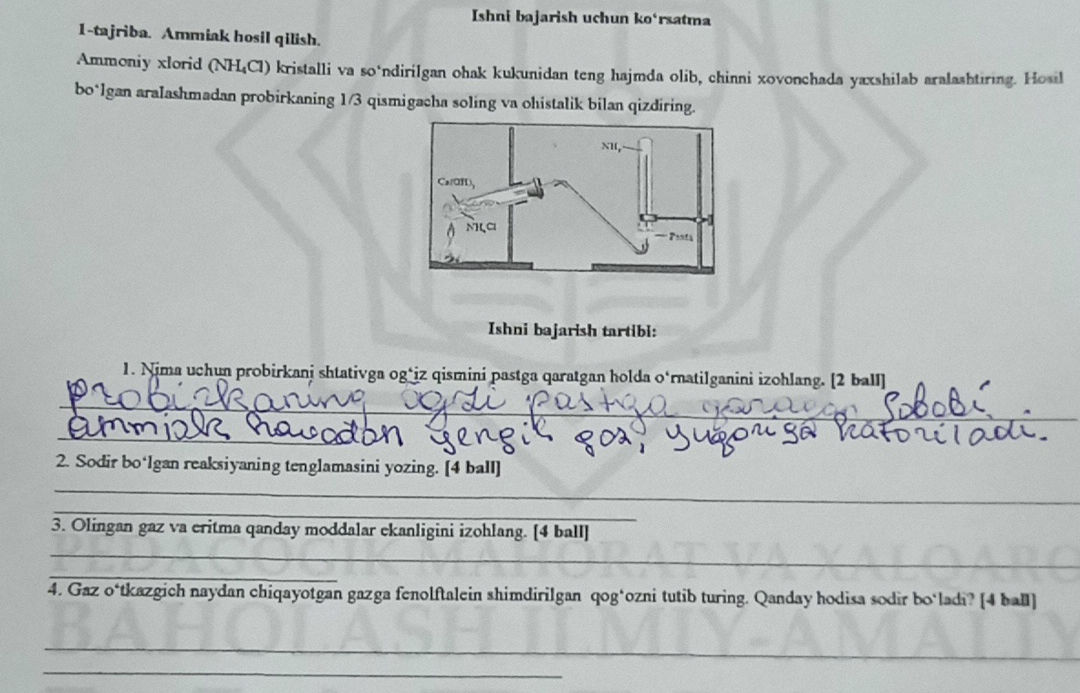 Ishni bajarish uchun ko‘rsatma
1-tajriba. Ammiak hosil qilish.
Ammoniy xlorid (NH₄Cl) kristalli va so‘ndirilgan ohak kukunidan teng hajmda olib, chinni xovonchada yaxshilab aralashtiring. Hosil
bo‘lgan aralashmadan probirkaning 1/3 qismigacha soling va ohistalik bilan qizdiring.
NH₃
Ca(OH)₂
NH₄Cl
Paxta
Ishni bajarish tartibi:
1. Nima uchun probirkani shtativga og‘iz qismini pastga qaratgan holda o‘rnatilganini izohlang. [2 ball]
Probirkaning og'zi pastga qaragan Sababi,
ammiak havodan yengil gaz, yuqoriga ko'tariladi.
2. Sodir bo‘lgan reaksiyaning tenglamasini yozing. [4 ball]
3. Olingan gaz va eritma qanday moddalar ekanligini izohlang. [4 ball]
4. Gaz o‘tkazgich naydan chiqayotgan gazga fenolftalein shimdirilgan qog‘ozni tutib turing. Qanday hodisa sodir bo‘ladi? [4 ball]
PEDAGOGIK MAHORAT VA XALQARO
BAHOLASH ILMIY-AMALIY